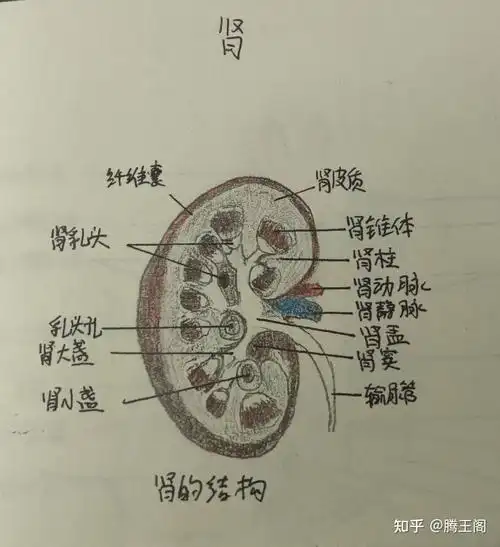 肾
纤维囊
肾皮质
肾乳头
肾锥体
肾柱
肾动脉
肾静脉
乳头孔
肾盂
肾大盏
肾窦
肾小盏
输尿管
肾的结构
知乎 @腾王阁